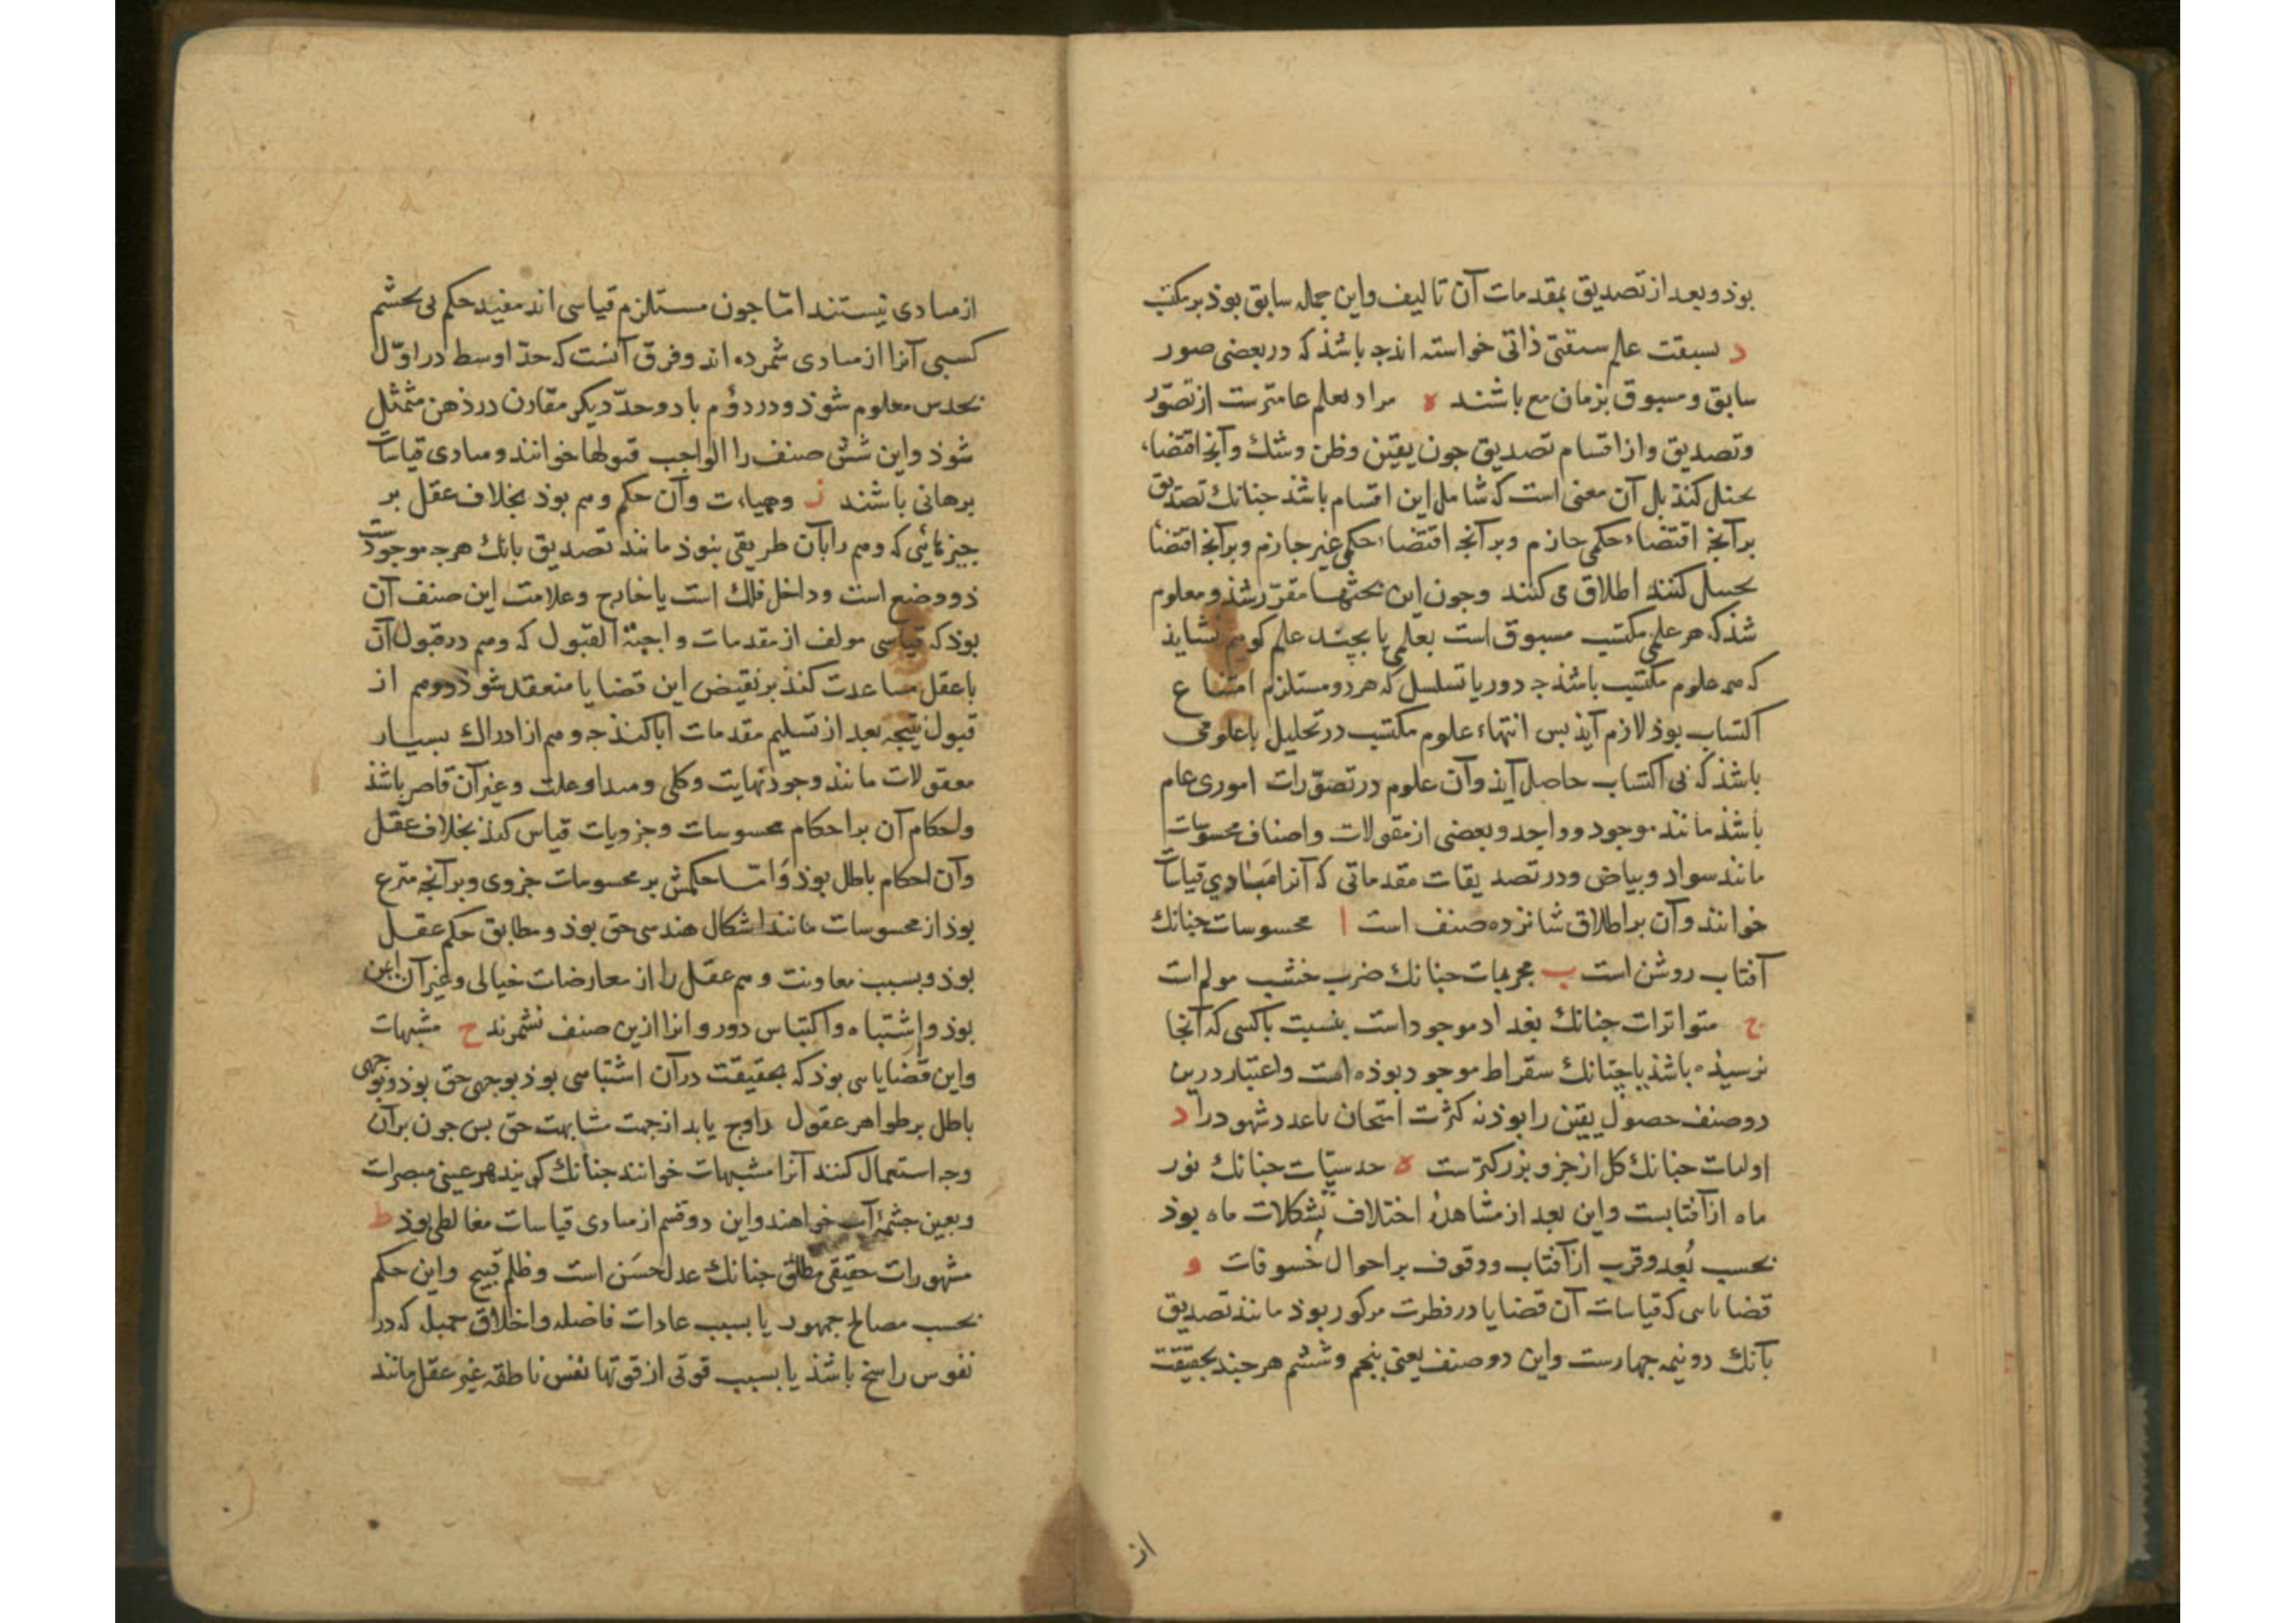 بوذ و بعد از تصدیق بمقدمات آن تالیف و این جمله سابق بوذ بر مکتب
د بسبقت علم سبقتی ذاتی خواسته اند جه باشذ که در بعضی صور
سابق و مسبوق بزمان مع باشند ه مراد بعلم عامترست از تصوّر
و تصدیق و از اقسام تصدیق جون یقین و ظن و شک و آنج اقتضاء
تخیل کنذ بل آن معنی است که شامل این اقسام باشذ جنانک تصدیق
بر آنج اقتضاء حکمی جازم و بر آنجه اقتضاء حکمی غیر جازم و بر آنج اقتضا
تخییل کنند اطلاق می کنند و جون این بحثها مقرّر شذ و معلوم
شذ که هر علمی مکتسب مسبوق است بعلمی یا بچند علم کوییم نشایذ
که همه علوم مکتسب باشذ جه دور یا تسلسل که هر دو مستلزم امتناع
اکتساب بوذ لازم آیذ بس انتهاء علوم مکتسب در تحلیل با علومی
باشذ که بی اکتساب حاصل آیذ و آن علوم در تصوّرات اموری عام
باشذ مانند موجود و واحد و بعضی از مقولات و اصناف محسوسات
مانند سواد و بیاض و در تصدیقات مقدماتی که آنرا مَبادی قیاسات
خوانند و آن بر اطلاق شانزده صنف است ا محسوسات جنانک
آفتاب روشن است ب مجربات جنانک ضرب خشب مولم است
ج متواترات جنانک بغداد موجود است بنسبت با کسی که آنجا
نرسیذه باشذ یا جنانک سقراط موجود بوذه است و اعتبار درین
دو صنف حصول یقین را بوذ نه کثرت امتحان یا عدد شهود را د
اولیات جنانک کل از جزو بزرکترست ه حدسیّات جنانک نور
ماه از آفتابست و این بعد از مشاهدهٔ اختلاف تشکلات ماه بوذ
بحسب بُعد و قرب از آفتاب و وقوف بر احوال خسوفات و
قضایایی که قیاسات آن قضایا در فطرت مرکوز بوذ مانند تصدیق
بآنک دو نیمه جهارست و این دو صنف یعنی بنجم و ششم هر جند بحقیقت
از
از مبادی نیستند امّا جون مستلزم قیاسی اند مفید حکم بی تجشم
کسبی آنرا از مبادی شمرده اند و فرق آنست که حدّ اوسط در اوّل
بحدس معلوم شوذ و در دوُم با دو حدّ دیکر مقارن در ذهن متمثل
شوذ و این شش صنف را الواجب قبولها خوانند و مبادی قیاسات
برهانی باشند ز وهمیات و آن حکم وهم بوذ بخلاف عقل بر
جیزهائی که وهم را بآن طریقی بنوذ مانند تصدیق بانک هرجه موجودست
ذو وضع است و داخل فلک است یا خارج و علامت این صنف آن
بوذ که قیاسی مولف از مقدمات واجبة القبول که وهم در قبول آن
با عقل مساعدت کنذ بر نقیض این قضایا منعقد شوذ و وهم از
قبول نتیجه بعد از تسلیم مقدمات ابا کنذ جه وهم از ادراک بسیار
معقولات مانند وجود نهایت و کلی و مبدا و علت و غیر آن قاصر باشذ
و احکام آن بر احکام محسوسات و جزویات قیاس کنذ بخلاف عقل
و آن احکام باطل بوذ وَامّا حکمش بر محسوسات جزوی و بر آنجه متفرع
بوذ از محسوسات مانند اشکال هندسی حق بوذ و مطابق حکم عقل
بوذ و بسبب معاونت وهم عقل را از معارضات خیالی و غیر آن ایمن
بوذ و اِشتباه و التباس دور و انرا ازین صنف نشمرند ح مشبهات
و این قضایایی بوذ که بحقیقت در آن اشتباهی بوذ بوجهی حق بوذ و بوجهی
باطل بر ظواهر عقول رواج یابد از جهت مشابهت حق بس جون بر آن
وجه استعمال کنند آنرا مشبهات خوانند جنانک کویند هر عینی مبصرست
و بعین جشمهٔ آب خواهند و این دو قسم از مبادی قیاسات مغالطی بوذ ط
مشهورات حقیقی مطلق جنانک عدل حسَن است و ظلم قبیح و این حکم
بحسب مصالح جمهور یا بسبب عادات فاضله و اخلاق جمیله که در
نفوس راسخ باشذ یا بسبب قوتی از قوتها نفس ناطقه غیر عقل مانند